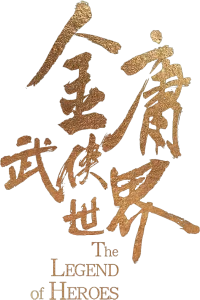 金庸
武侠世界
The
LEGEND
of HEROES